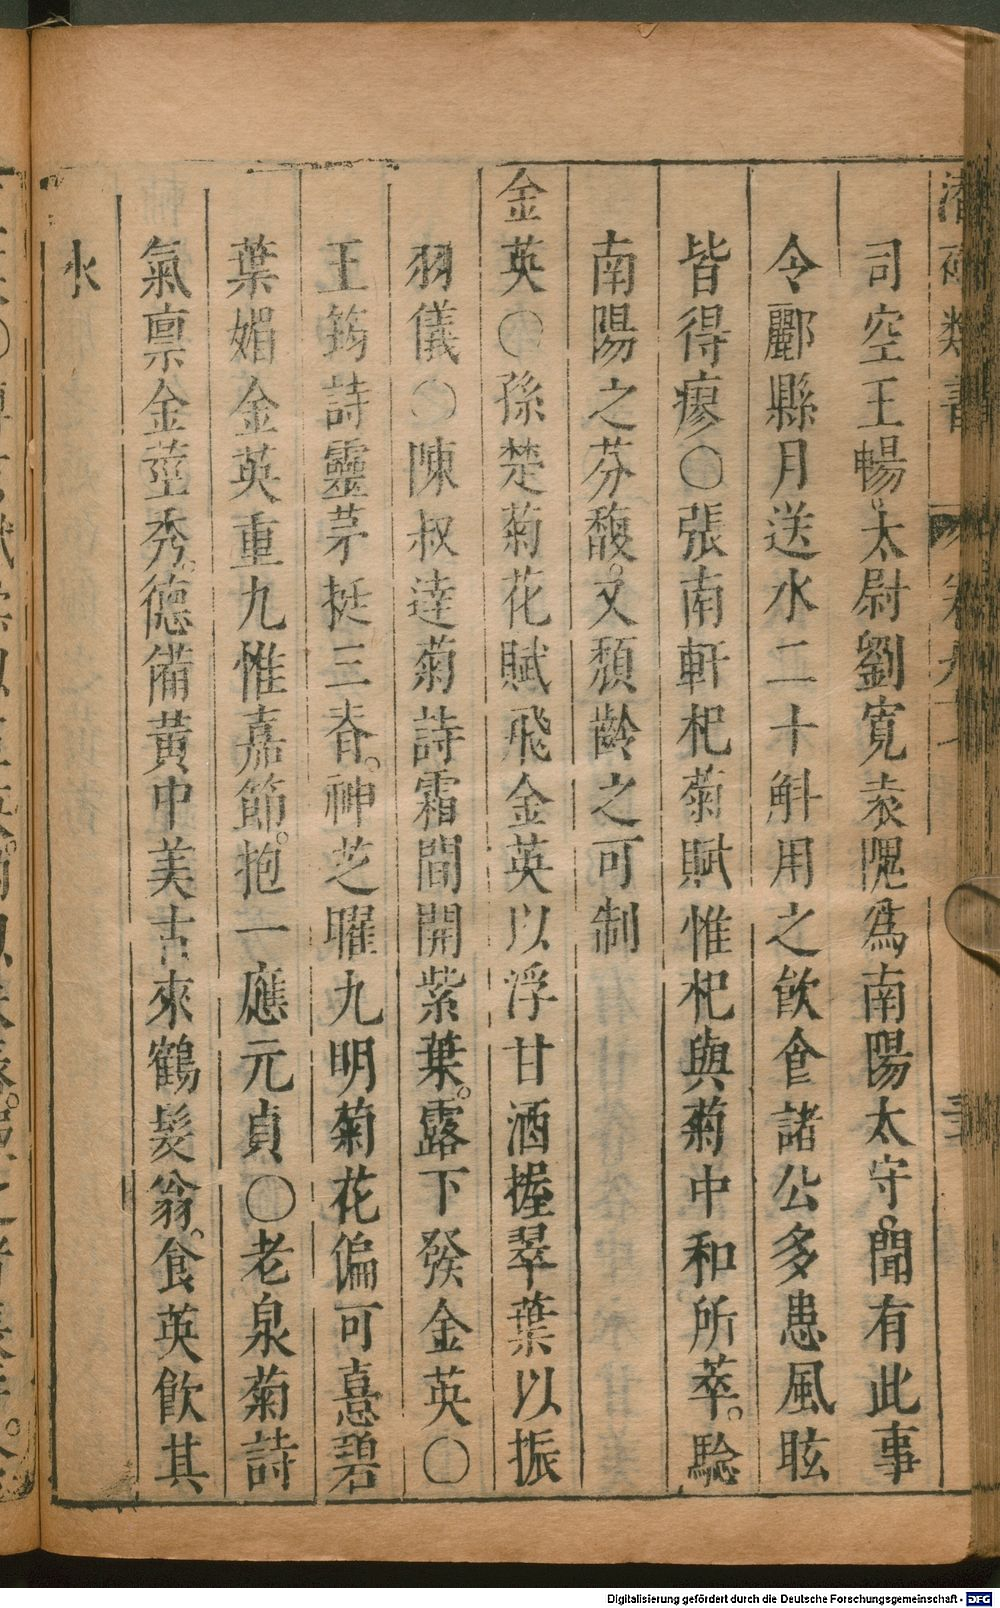 司空王暢。太尉劉寬袁隗爲南陽太守。聞有此事
令酈縣月送水二十斛用之飮食諸公多患風眩
皆得瘳〇張南軒杞菊賦惟杞與菊中和所萃。騐
南陽之芬馥。又頹齡之可制
金英〇孫楚菊花賦飛金英以浮甘酒握翠葉以振
羽儀〇陳叔達菊詩霜間開紫葉。露下發金英〇
王筠詩靈茅挺三春。神芝曜九明菊花偏可憙碧
葉媚金英重九惟嘉節。抱一應元貞〇老泉菊詩
氣禀金莖秀。德備黃中美古來鶴髮翁。食英飮其
水
Digitalisierung gefördert durch die Deutsche Forschungsgemeinschaft - DFG